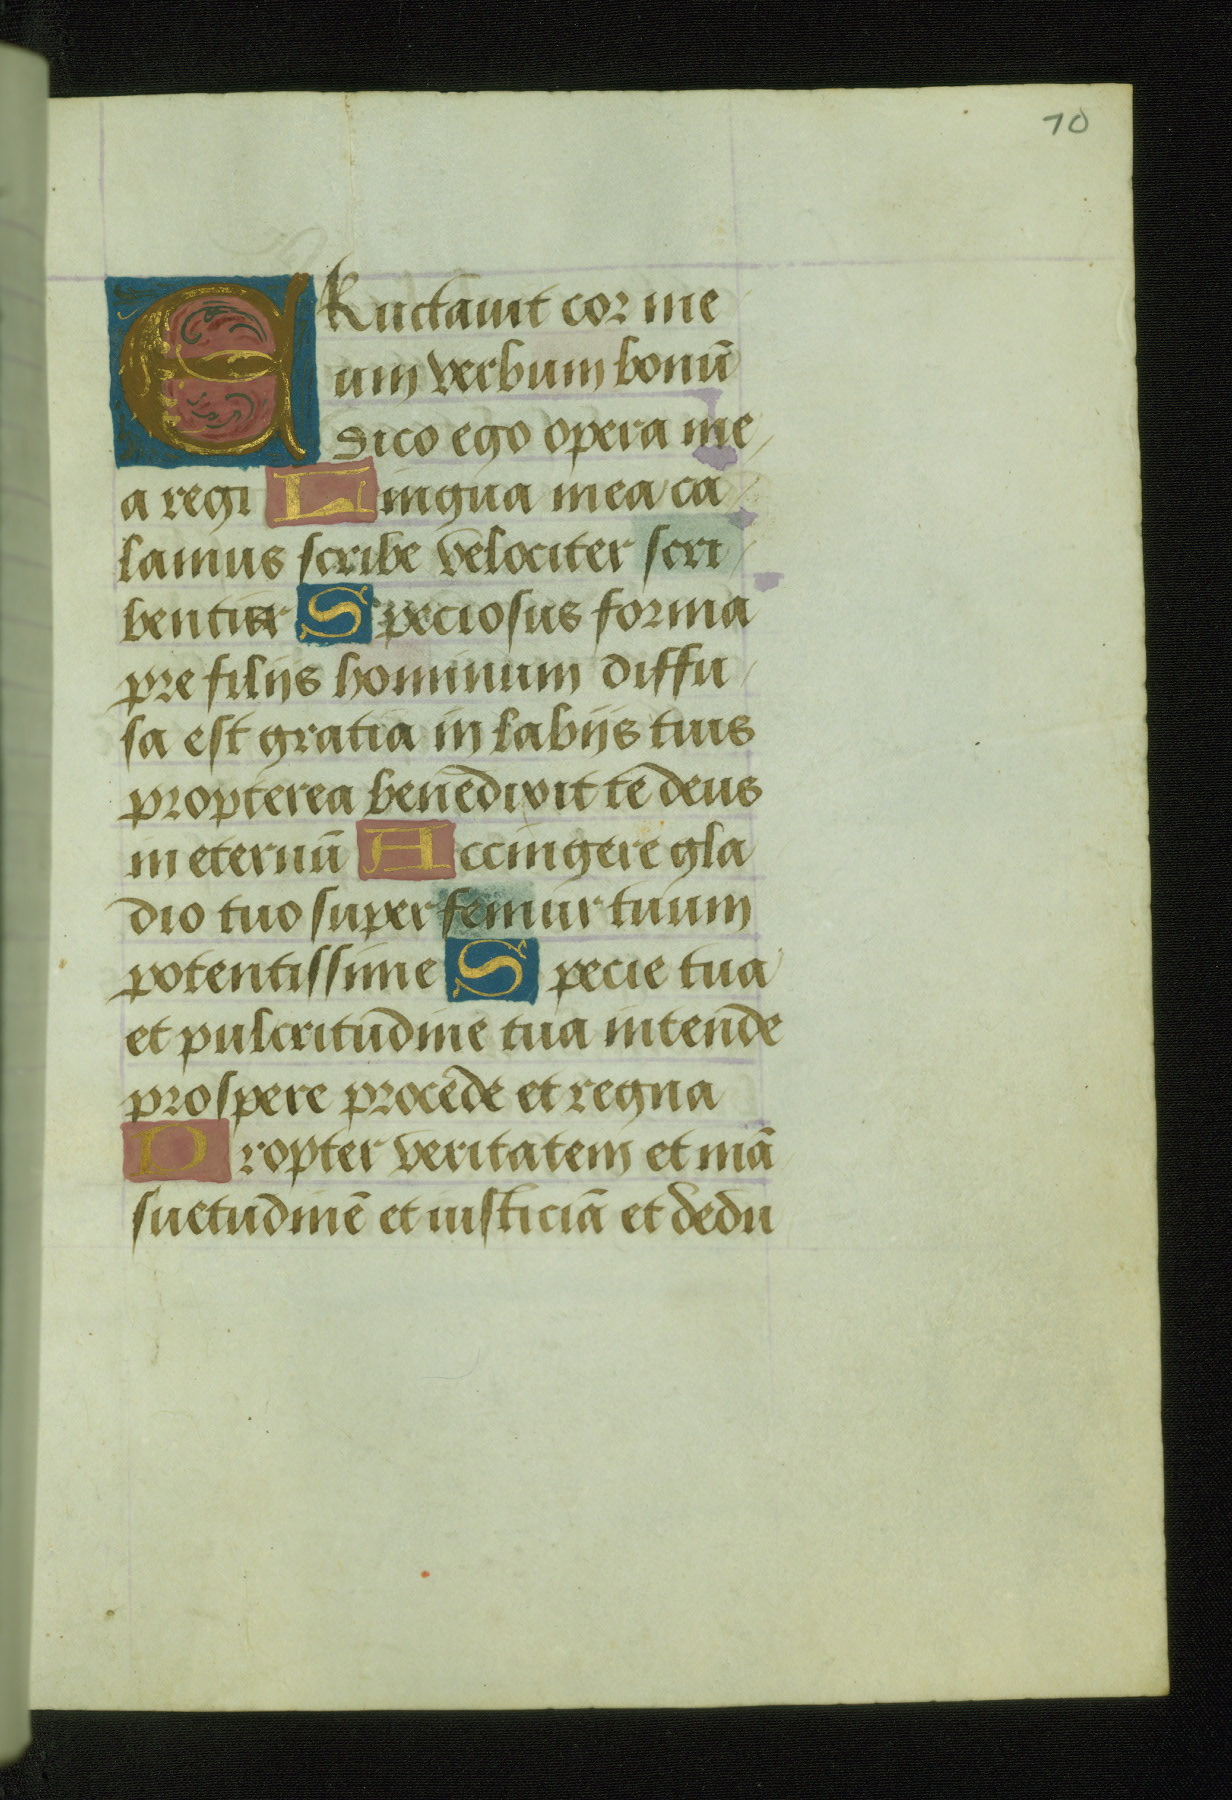 10
ERuctauit cor me
um verbum bonū
Dico ego opera me
a regi Lingua mea ca
lamus scribe velociter scri
bentis Speciosus forma
pre filijs hominum diffu
sa est gratia in labijs tuis
propterea benedixit te deus
in eternū Accingere gla
dio tuo super femur tuum
potentissime Specie tua
et pulcritudine tua intende
prospere procede et regna
Propter veritatem et mā
suetudinē et iusticiā et dedu